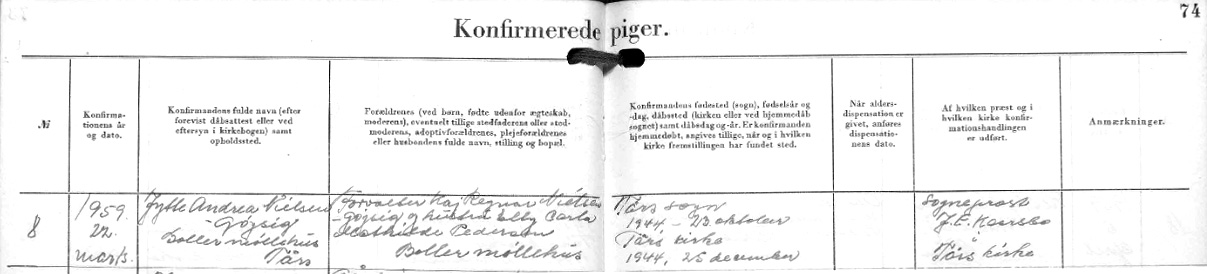 74
Konfirmerede piger.
№
Konfirma-
tionens år
og dato.
Konfirmandens fulde navn (efter
forevist dåbsattest eller ved
eftersyn i kirkebogen) samt
opholdssted.
Forældrenes (ved børn, fødte udenfor ægteskab,
moderens), eventuelt tillige stedfaderens eller sted-
moderens, adoptivforældrenes, plejeforældrenes
eller husbondens fulde navn, stilling og bopæl.
Konfirmandens fødested (sogn), fødselsår og
-dag, dåbssted (kirken eller ved hjemmedåb
sognet) samt dåbsdag og -år. Er konfirmanden
hjemmedøbt, angives tillige, når og i hvilken
kirke fremstillingen har fundet sted.
Når alders-
dispensation er
givet, anføres
dispensatio-
nens dato.
Af hvilken præst og i
hvilken kirke konfir-
mationshandlingen
er udført.
Anmærkninger.
8
1959
22.
marts.
Jytte Andrea Nielsen
Gøjsig
Boller møllehus
Tårs
Forvalter Kaj Regnar Nielsen
Gøjsig og hustru Elly Carla
Mathilde Pedersen
Boller møllehus
Tårs sogn
1944, 23 oktober
Tårs kirke
1944, 25 december
Sognepræst
J. E.
"
Tårs kirke